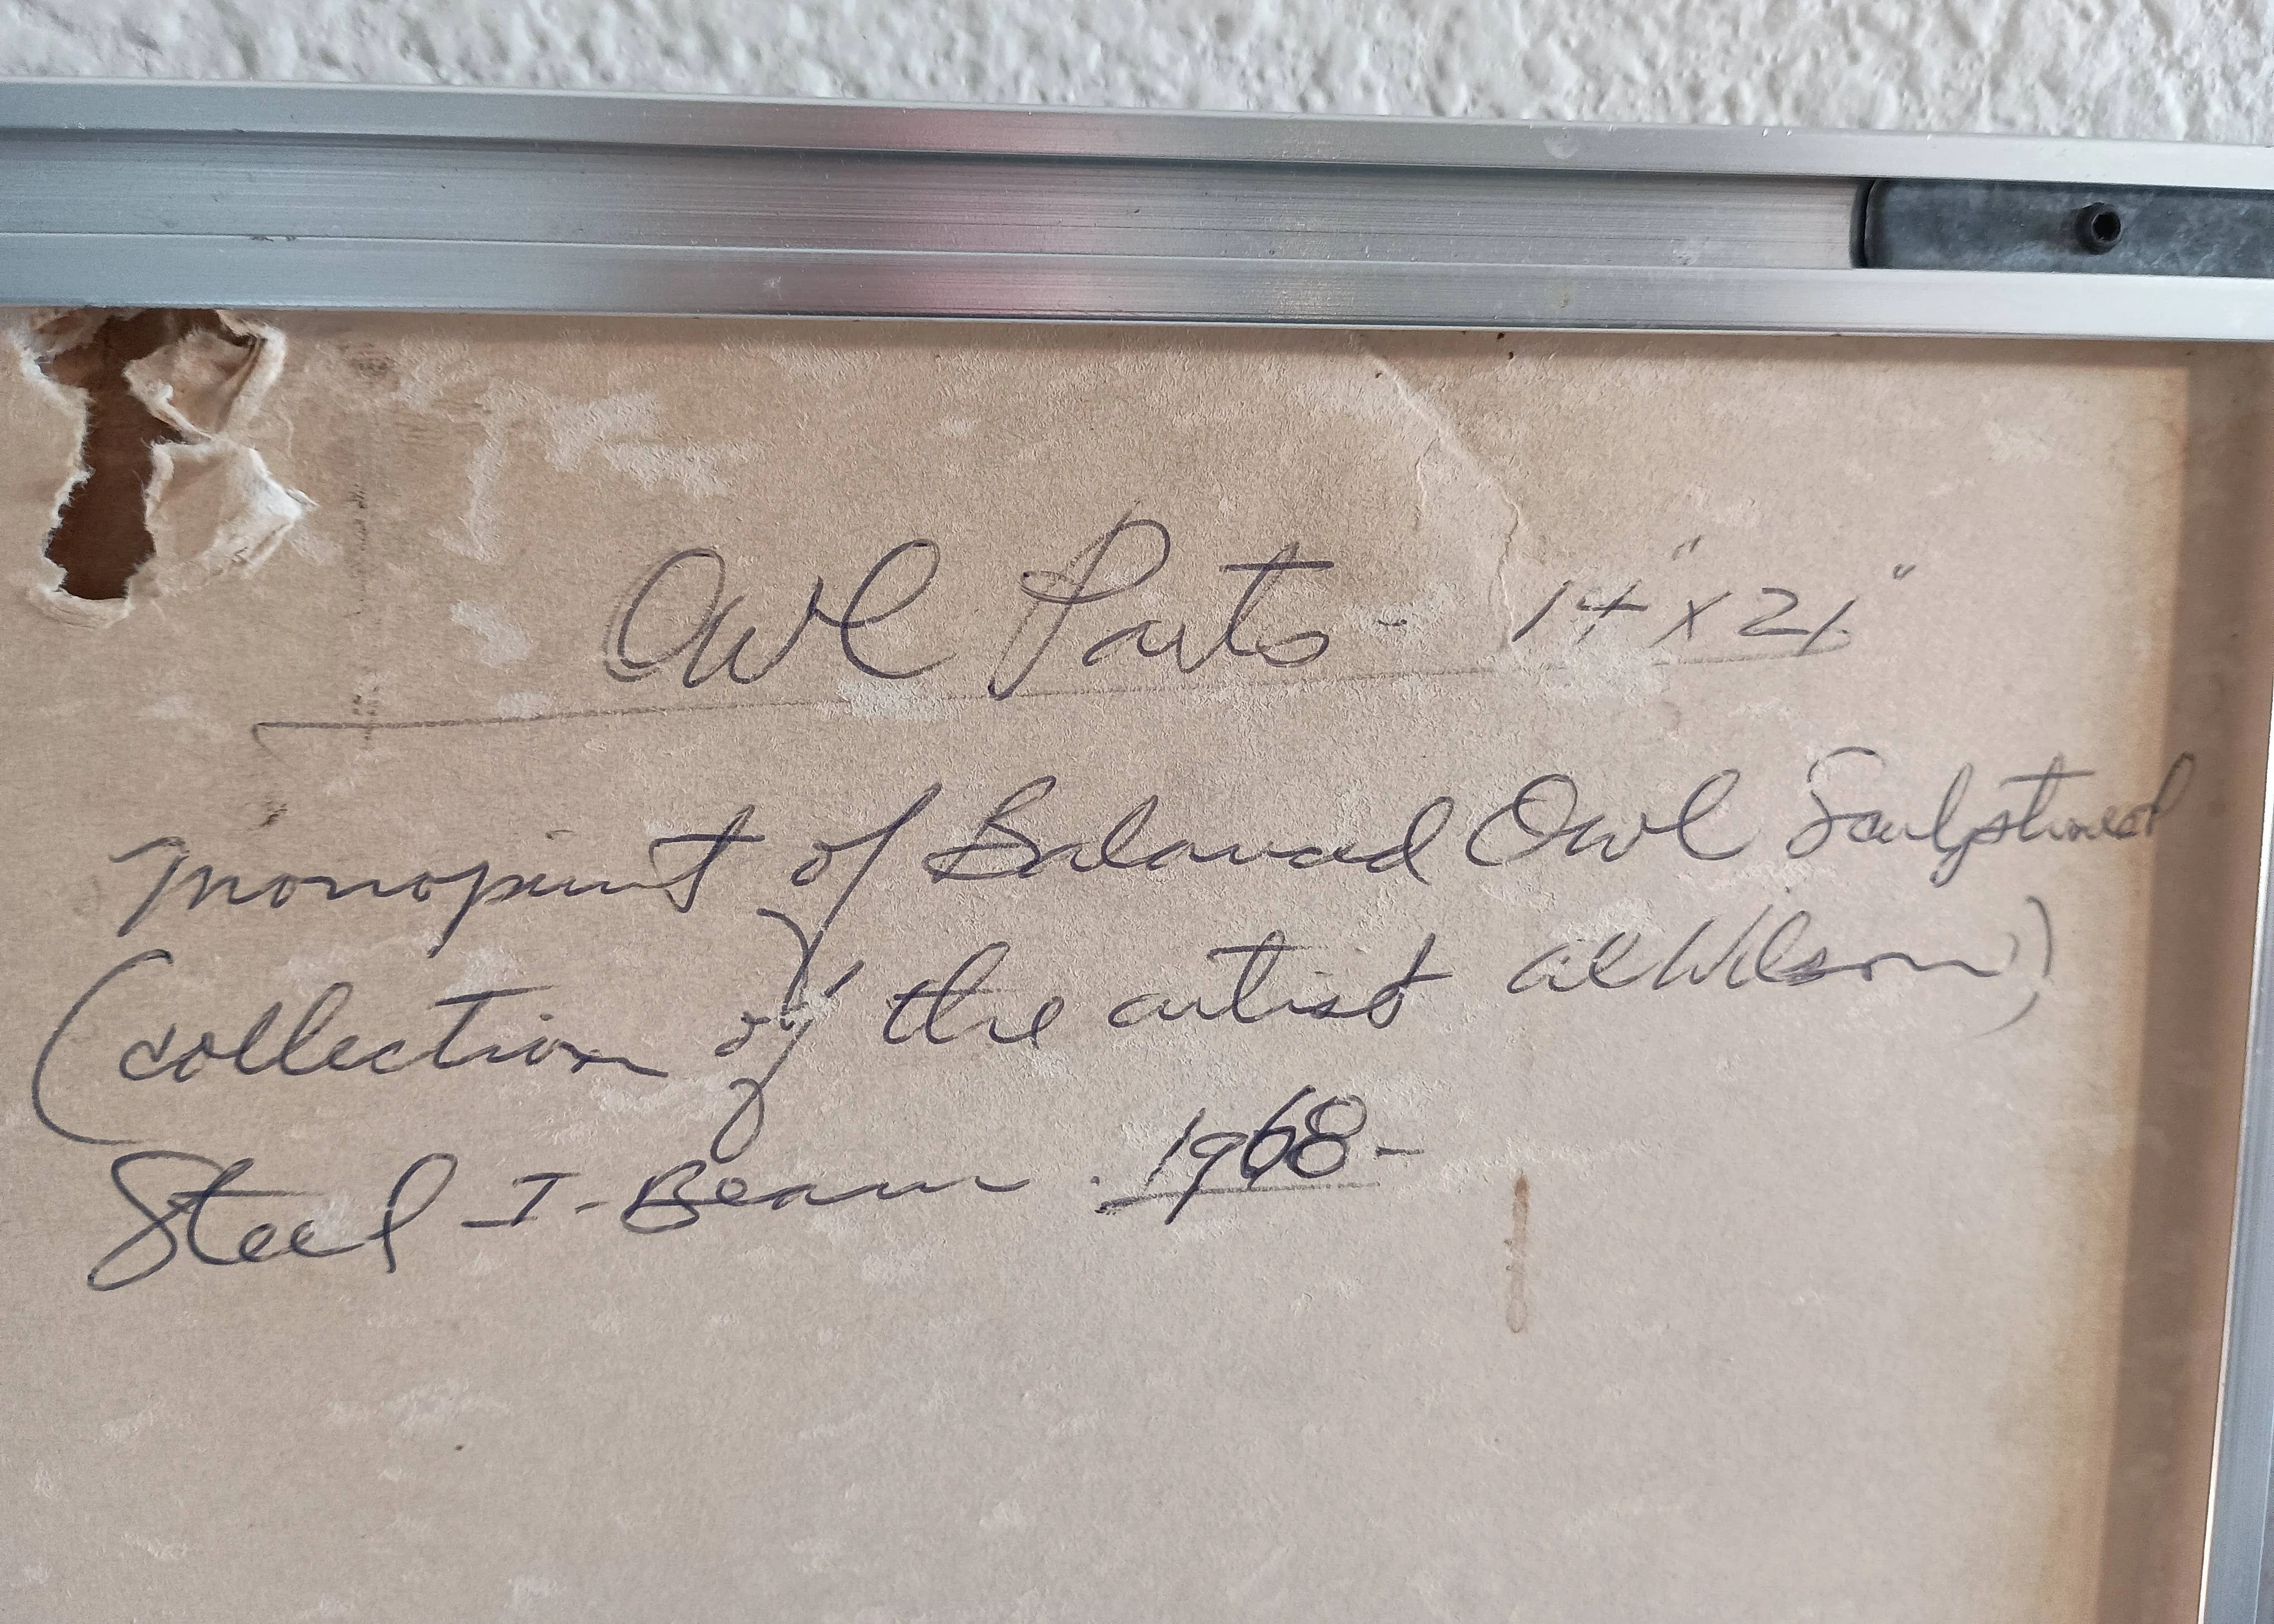 Owl Parts - 14" x 21"
Monoprint of Balanced Owl Sculptured
(collection of the artist Al Wilson)
Steel I-Beam. 1968-